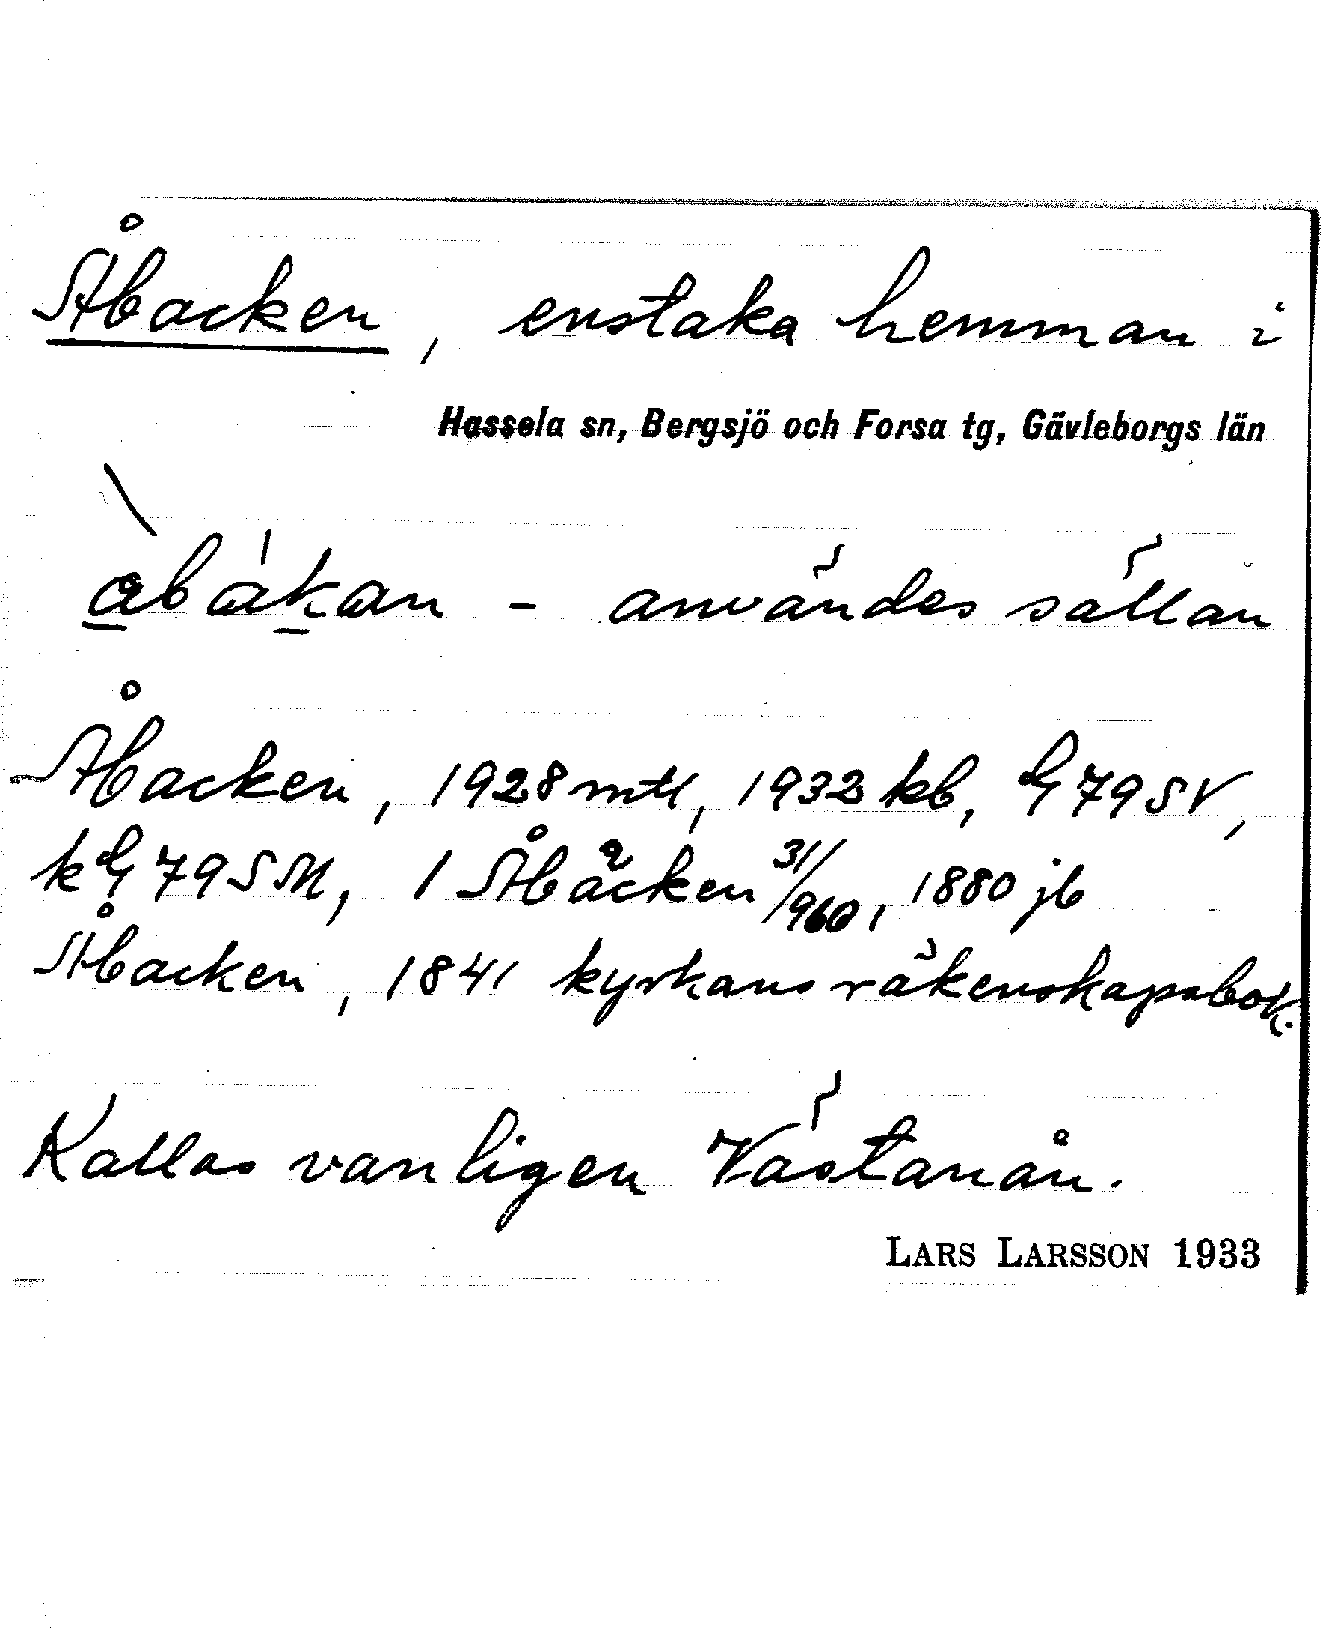 Åbacken, enstaka hemman i
Hassela sn, Bergsjö och Forsa tg, Gävleborgs län
åbakan - användes sällan
Åbacken, 1928 mtl, 1932 kb, G 79 SV,
k G 79 SM, 1 Åbäcken 31/960, 1880 jb
Åbacken, 1841 kyrkans räkenskapsbok.
Kallas vanligen Västanån.
LARS LARSSON 1933